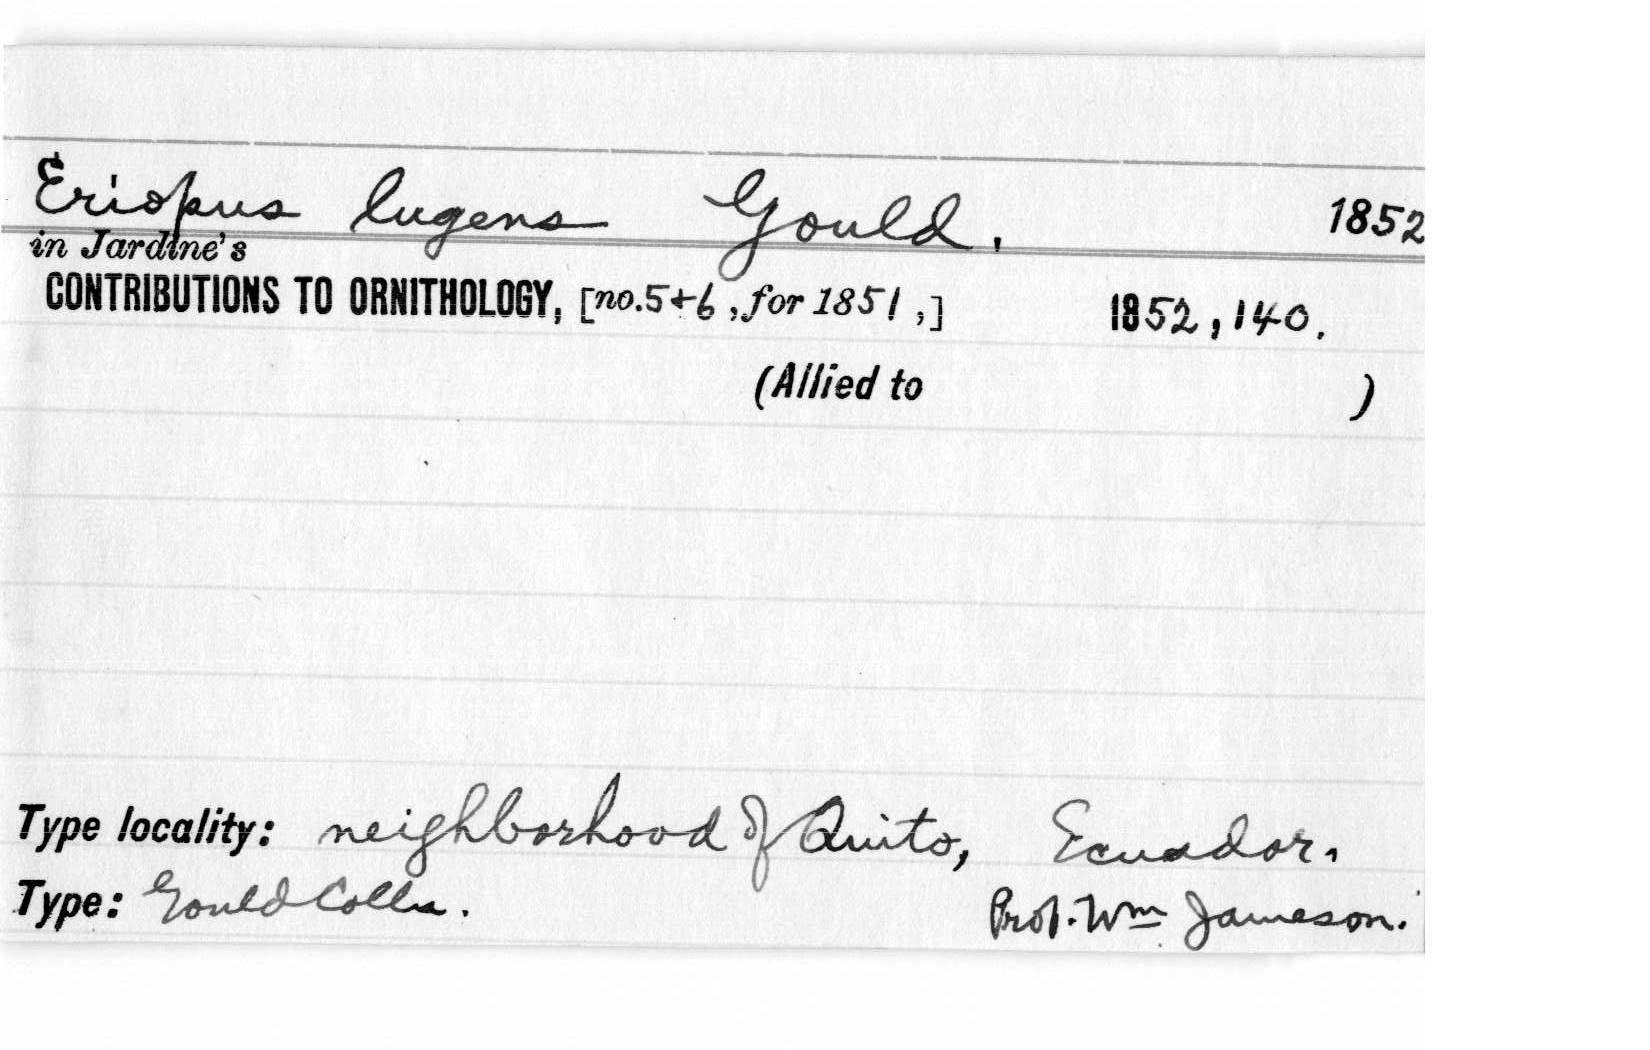 Eriopus lugens Gould. 1852
in Jardine's
CONTRIBUTIONS TO ORNITHOLOGY, [no.5+6, for 1851,] 1852, 140.
(Allied to )
Type locality: neighborhood of Quito, Ecuador.
Type: Gould Colln. Prof. Wm Jameson.